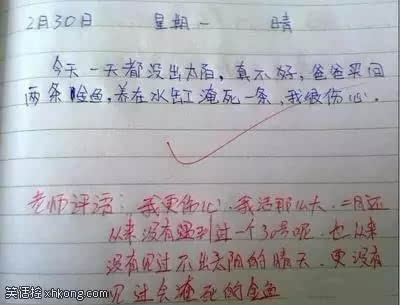 2月30日 星期一 晴
今天一天都没出太阳，真不好，爸爸买回
两条金鱼，养在水缸淹死一条，我很伤心．
老师评语：我更伤心．我活那么大．二月还
从来没有遇到过一个30号呢．也从来
没有见过不出太阳的晴天．更没有
见过会淹死的金鱼
笑话栓xhkong.com